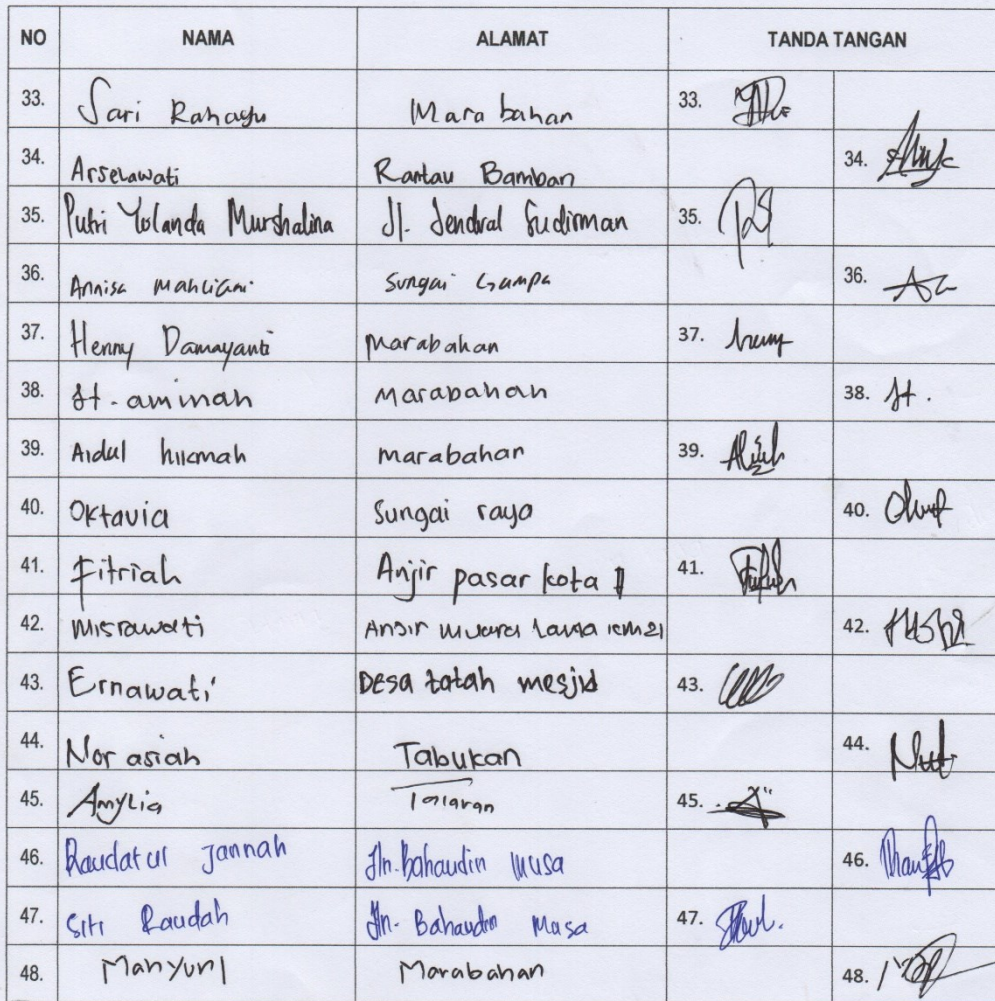 NO NAMA ALAMAT TANDA TANGAN
33. Sari Rahayu Marabahan 33.
34. Arselawati Rantau Bamban 34.
35. Putri Yolanda Murshalina Jl. Jendral Sudirman 35.
36. Annisa Mahliani Sungai Gampa 36.
37. Henny Damayanti Marabahan 37.
38. St. aminah Marabahan 38. St.
39. Aidul hikmah marabahan 39.
40. Oktavia Sungai raya 40.
41. Fitriah Anjir pasar kota 41.
42. Misrawati Anjir Muara Lama km 21 42.
43. Ernawati Desa tatah mesjid 43.
44. Nor asiah Tabukan 44.
45. Amylia 45.
46. Raudatul Jannah Jln. Bahaudin Musa 46.
47. Siti Raudah Jln. Bahaudin Musa 47.
48. Mahyuni Marabahan 48.